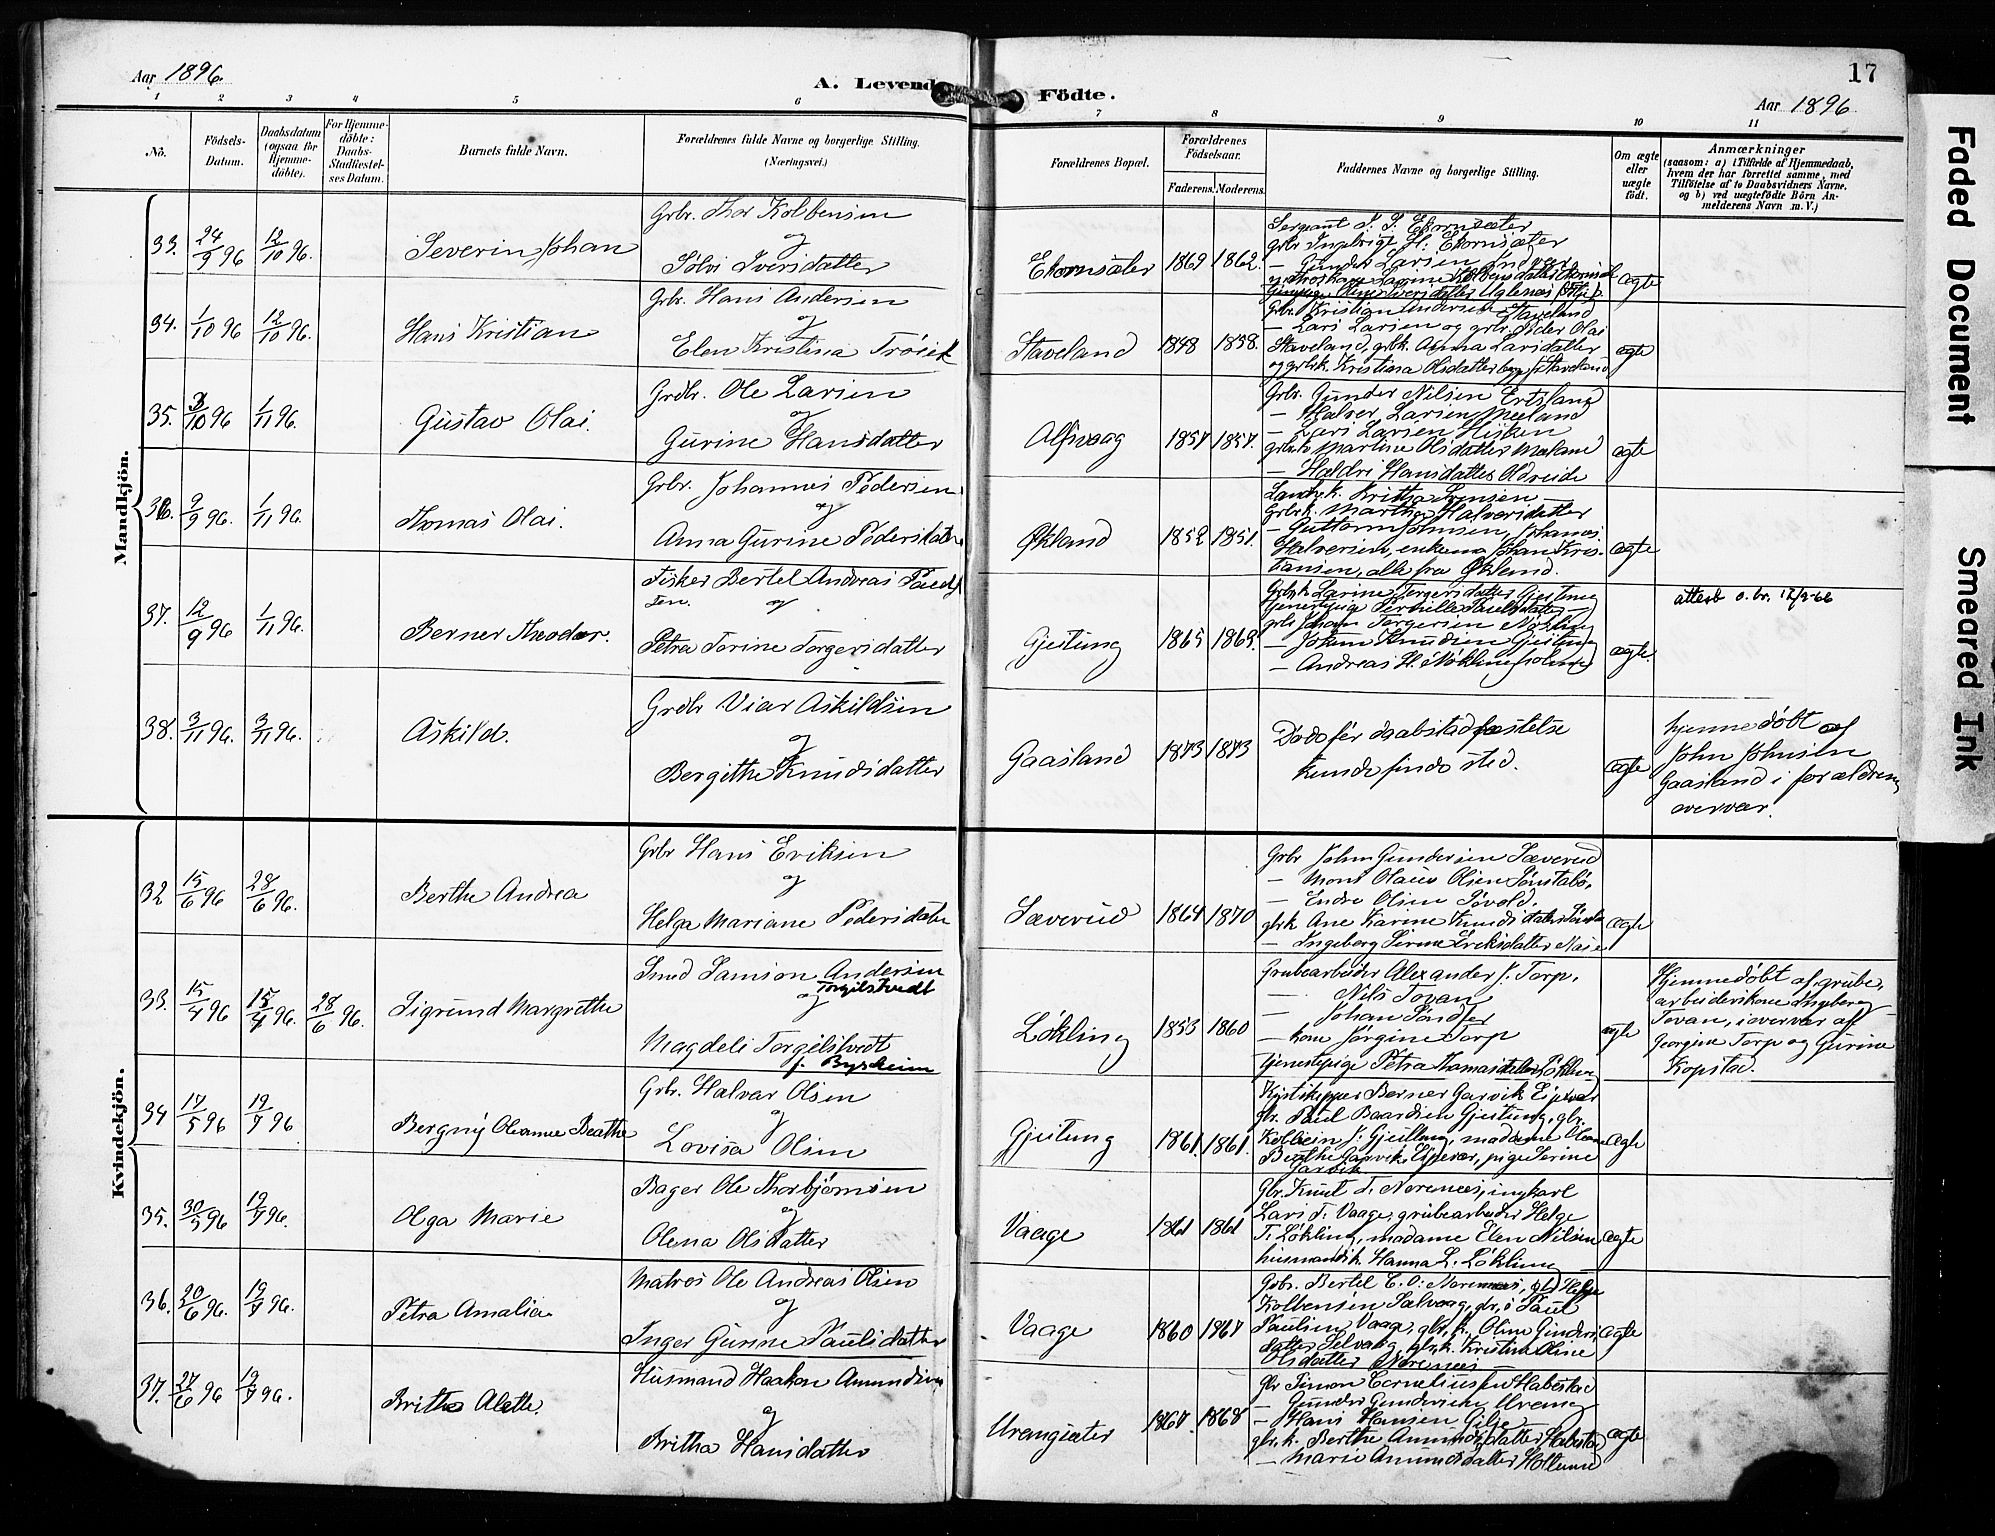 Aar 1896.
A. Levende Födte.
17
Aar 1896
1 2 3 4 5 6 7 8 9 10 11
No.
Födsels-Datum.
Daabsdatum (ogsaa for Hjemme-döbte).
For Hjemme-döbte: Daabs-Stadfæstel-ses Datum.
Barnets fulde Navn.
Forældrenes fulde Navne og borgerlige Stilling. (Næringsvei.)
Forældrenes Bopæl.
Forældrenes Födselsaar.
Faderens. Moderens.
Faddernes Navne og borgerlige Stilling.
Om ægte eller uægte födt.
Anmærkninger
(saasom: a) i Tilfælde af Hjemmedaab, hvem der har forrettet samme, med Tilföielse af to Daabsvidners Navne, og b) ved uægtefödte Börn An-melderens Navn m. V.)
Mandkjön.
33. 24/9 96 12/10 96. Severin Johan
Grbr. Thor Kolbensen
og
Sølvi Iversdatter
Ekornsæter 1869 1862.
Sergeant J. J. Ekornsæter
grbr Ingebrigt H. Ekornsæter
ægte
34. 1/10 96 12/10 96. Hans Kristian
Grbr. Hans Andersen
og
Elen Kristina Trøiel
Staveland 1848 1858.
Grbr. Kristian Andersen Staveland
— Lars Larsen og grbr. Peder Olai
Staveland, grbk. Anna Larsdatter
og grbrk. Kristina Olsdatter
ægte
35. 3/10 96 1/11 96. Gustav Olai.
Grdbr. Ole Larsen
og
Gurine Hansdatter
Alfsvaag 1857 1857.
Grbr. Gunder Nilsen Ertsland
— Halver Larsen Meeland
— Lars Larsen Hisken
Martine Olsdatter Mæland
— Hældri Hansdatter Oldreide
ægte
36. 9/9 96. 1/11 96. Thomas Olai.
Grbr. Johannes Pedersen
og
Anna Gurine Pedersdatter
Økland 1852 1851.
Grbrk. Martha Halversdatter
— Guttorm Johnsen, Johannes
Halversen, enkema Johan Kris-
tansen, alle fra Økland.
ægte
37. 12/9 96 1/11 96. Berner Theodor.
Fisker Bertel Andreas Pauls
sen. og
Petra Torine Torgersdatter
Gjeitung 1865 1869.
Grbrk Larine Torgersdatter Gjeitung
Tjenestepige Pernille Paulsdatter —
grbr Johan Torgersen Nøkling
— Johan Knudsen Gjeitung
— Andreas H.
ægte.
attest o. br. 12/9-66
38. 3/11 96. 3/11 96. Askild.
Grdbr Viar Askildsen
og
Bergithe Knudsdatter
Gaasland 1873 1873
Døde før daabstadfæstelse
kunde finde sted.
ægte
hjemmedøbt af
John Johnsen
Gaasland i forældrenes
overvær.
Kvindekjön.
32 15/6 96 28/6 96. Berthe Andrea
Grbr Hans Eriksen
og
Helga Mariane Pedersdatter
Sæverud 1864 1870
Grbr John Gundersen Sæverud
— Mons Olaus Olsen Sønstabø.
— Endre Olsen Sövold.
gbrk Ane Karine Knudsdatter
— Ingeborg Sirine Eriksdatter
ægte
33. 15/4 96 15/4 96. 28/6 96. Sigrund Margrethe
Smed Samson Andersen
Torgilstvedt
og
Magdeli Torgilstvedt
f. Bysheim
Løkling 1853 1860
Grubearbeider Alexander J. Torp.
— Nils Tovan
— Johan Söndfer
— Kone Jørgine Torp
Tjenestepige Petra Thomasdatter Løkling
ægte
Hjemmedøbt af grube-
arbeiderskone Ingeborg
Tovan, i overvær af
Georgine Torp og Gurine
Kopstad.
34 17/5 96 19/7 96 Bergny Oleanne Beathe
Grbr. Halvar Olsen
og
Lovisa Olsen
Gjeitung 1861 1861.
Kystskipper Berner Garvik Espevær
gbr. Paul Baardsen Gjeitung, gbr.
Kolbein J. Gjeitung, madame Oleane
Berthe Garvik Espevær, pige Serine
Garvik
ægte
35. 30/5 96 19/7 96. Olga Marie
Bager Ole Thorbjørnsen
og
Olena Olsdatter
Vaage 1861 1861
Gbr. Knut T. Nørenæs, ungkarl
Lars T. Vaage, grubearbeider Helge
T. Løkling, madame Elen Nilsen
husmandsk. Hanna L. Løkling
ægte
36. 20/6 96. 19/7 96. Petra Amalia.
Matros Ole Andreas Olsen
og
Inger Gurine Paulsdatter
Vaage 1860 1867
Grbr. Bertel C. O. Nørenæs, gbr Helge
Kolbensen Sælvaag, gbr. s Paul
Paulsen Vaage, gbr. k. Oline Gunders
datter Selvaag, gbr. k. Kristine Oline
Olsdatter Nørenæs
ægte
37. 27/6 96 19/7 96. Britha Alette.
Husmand Haakon Amundsen
og
Britha Hansdatter
Urangsæter 1867 1868
gbr Simon Corneliussen Habestad
— Gunder Gundersen Urang
— Hans Hansen Gilje
gbr. k. Berthe Amundsdatter Habestad
— Marie Amundsdatter Hollund
ægte
Faded Document
Smeared Ink